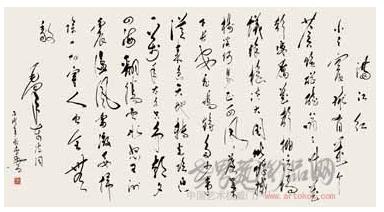 满江红
小小寰球有几个
苍蝇碰壁嗡嗡叫几
声凄厉几声抽泣
蚂蚁缘槐夸大国蚍蜉
撼树谈何易正西风落叶
下长安飞鸣镝多少事
从来急天地转光阴迫
一万年太久只争朝夕
四海翻腾云水怒五洲
震荡风雷激要扫
除一切害人虫全无
敌
毛泽东诗词
www.artokok.com